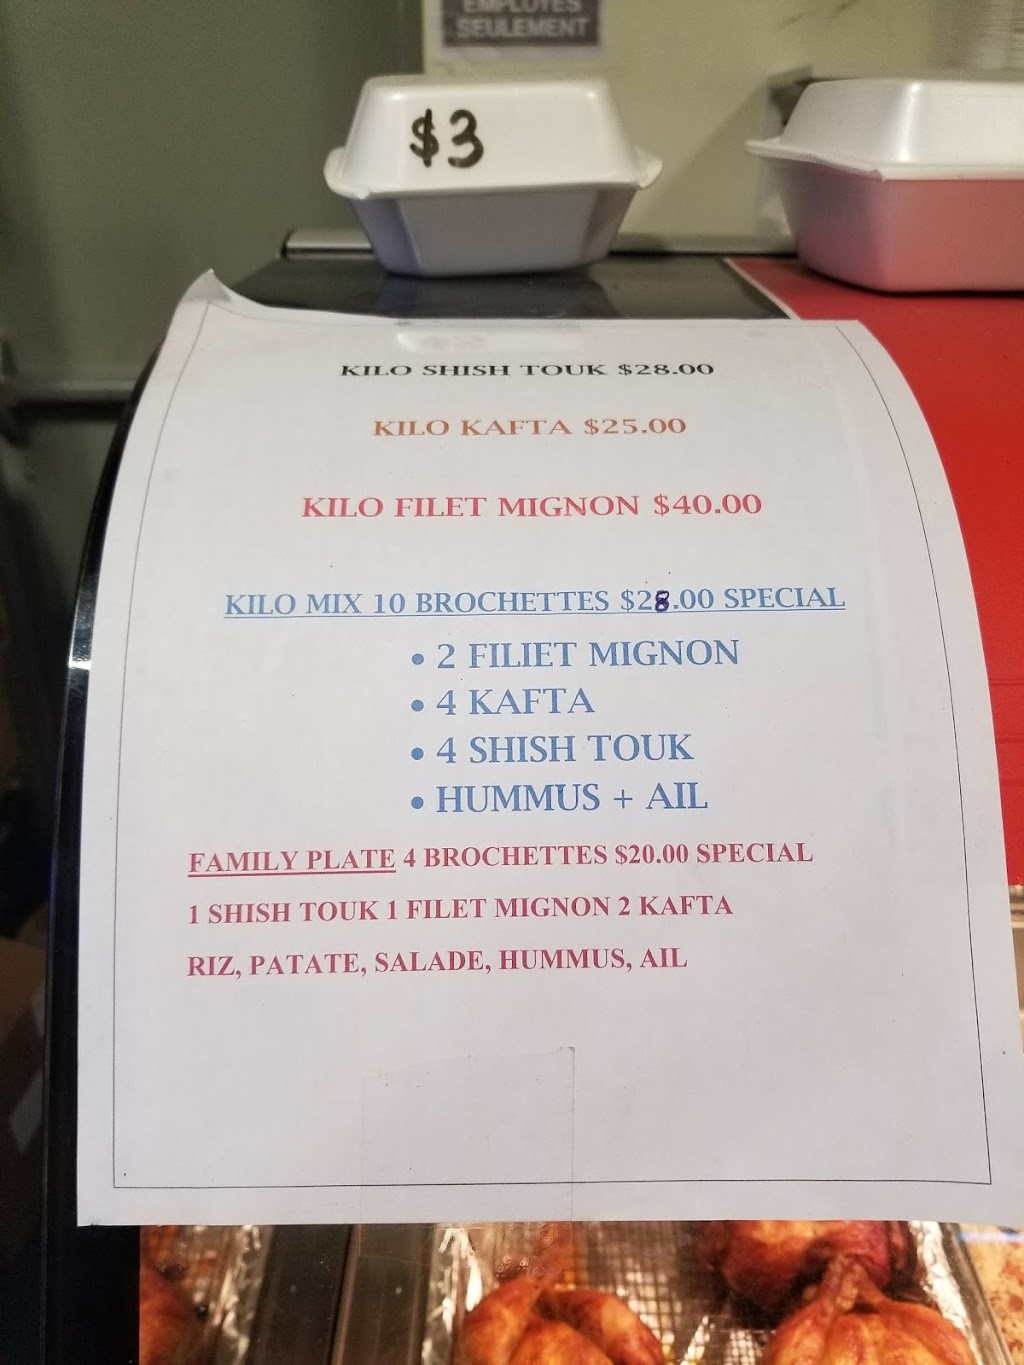 EMPLOYÉS
SEULEMENT
$3
KILO SHISH TOUK $28.00
KILO KAFTA $25.00
KILO FILET MIGNON $40.00
KILO MIX 10 BROCHETTES $28.00 SPECIAL
• 2 FILIET MIGNON
• 4 KAFTA
• 4 SHISH TOUK
• HUMMUS + AIL
FAMILY PLATE 4 BROCHETTES $20.00 SPECIAL
1 SHISH TOUK 1 FILET MIGNON 2 KAFTA
RIZ, PATATE, SALADE, HUMMUS, AIL